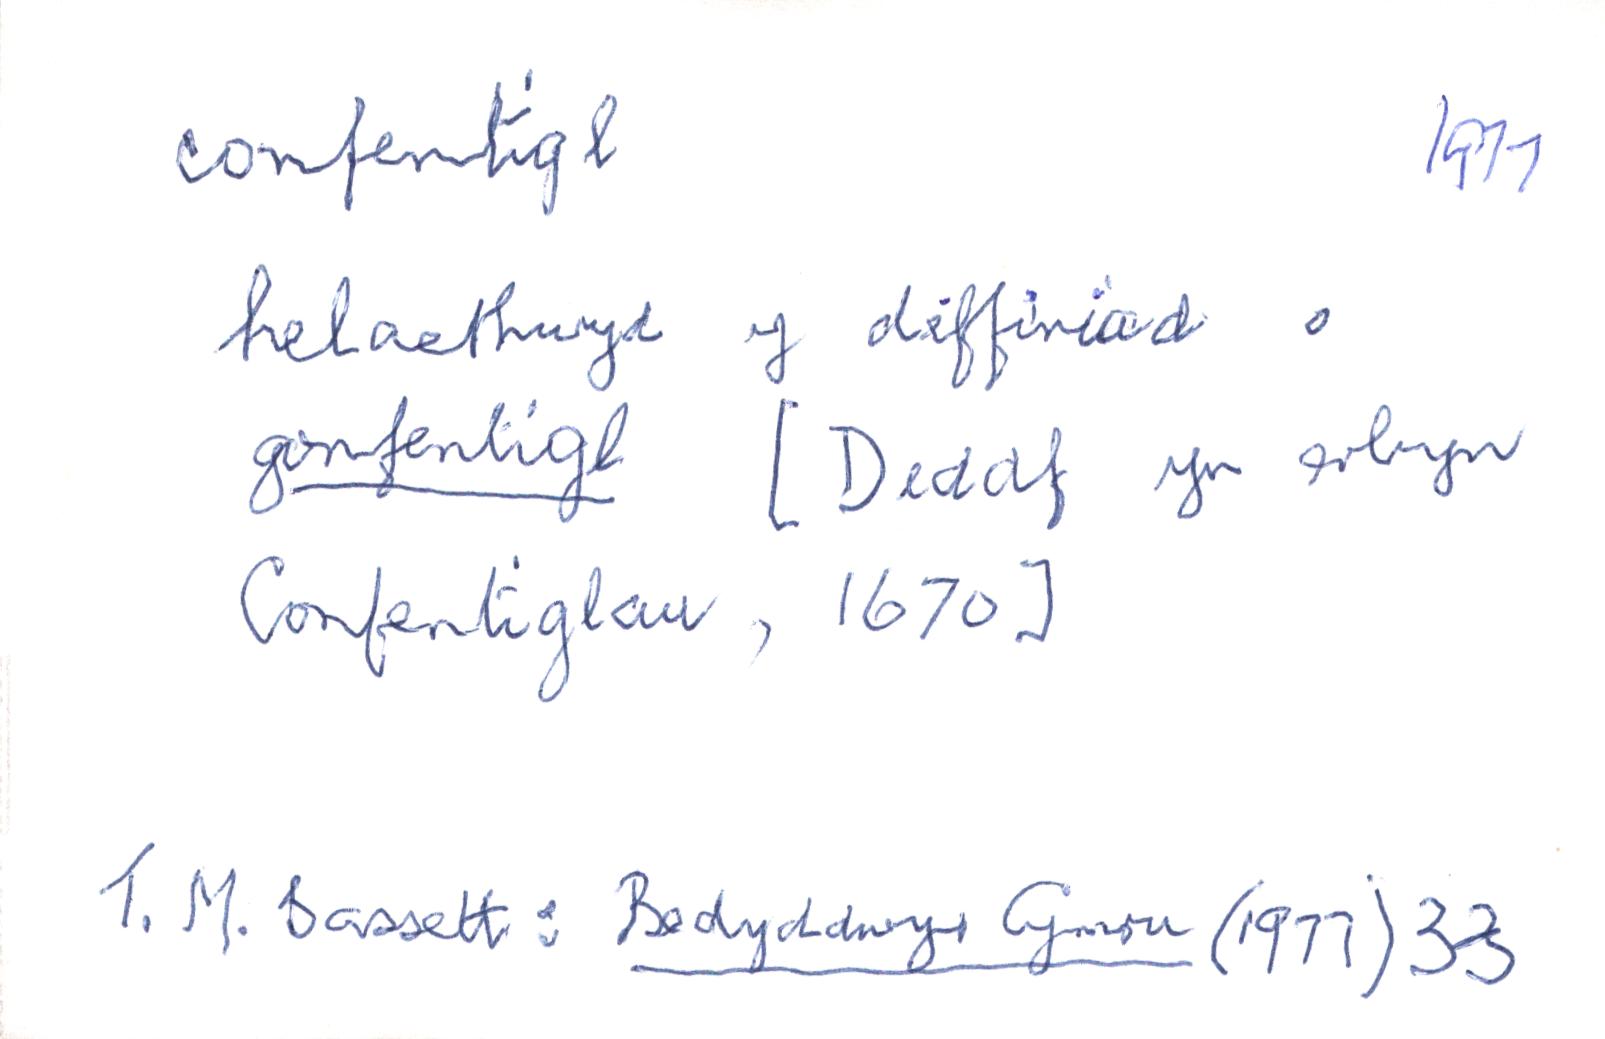 confentigl 1977
helaethwyd y diffiniad o
gonfentigl [Deddf yn erbyn
Confentiglau, 1670]
T. M. Bassett: Bedyddwyr Cymru (1977) 33